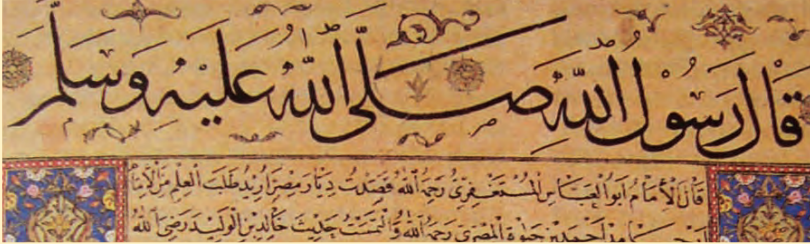 قَالَ رَسُوْلُ اللهِ صَلَّى اللهُ عَلَيْهِ وَسَلَّمَ
قَالَ الْإِمَامُ اَبُوا الْعَبَّاسِ الْمُسْتَغْفِرِىُّ رَحِمَهُ اللهُ قَصَدْتُ دِيَارَ مِصْرَ اُرِيدُ طَلَبَ الْعِلْمِ مِنَ الْاِمَا
الْمِصْرِى رَحِمَهُ اللهُ وَالْتَمَسْتُ حَدِيثَ خَالِدِ بْنِ الْوَلِيدِ رَضِىَ اللهُ